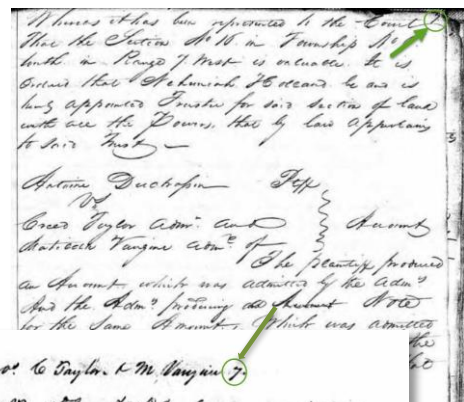 Whereas it has been represented to the Court 7.
That the Section No 16 in Township No
South in Range 7. West is valuable. It is
Ordered that Nehemiah Holland be and is
hereby appointed Trustee for said section of land
with all the Powers, that by law appertains
to said Trust —
Antoine Duchassin Plff
Vs
Creed Taylor Admr. and Account
Matilda Vaugine Adm. of
The plaintiff produced
an Account which was admitted by the Admr
And the Admr producing Note
for the Same Amount, Which was admitted
the
C Taylor & M. Vaugine 7.